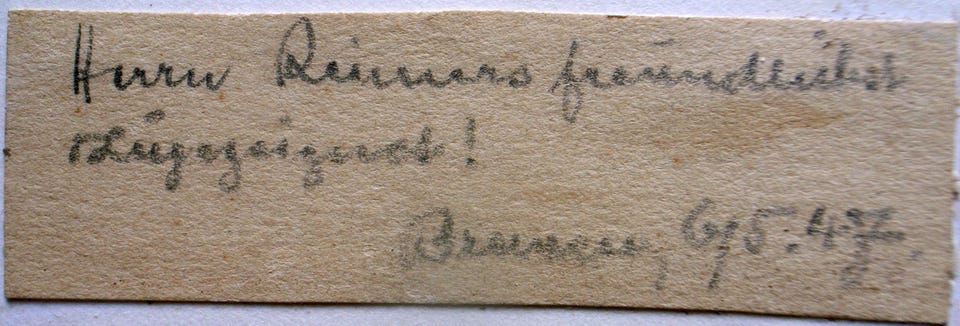 Herrn Reimers freundlichst
zugeeignet!
Bremen, 6/5. 47.